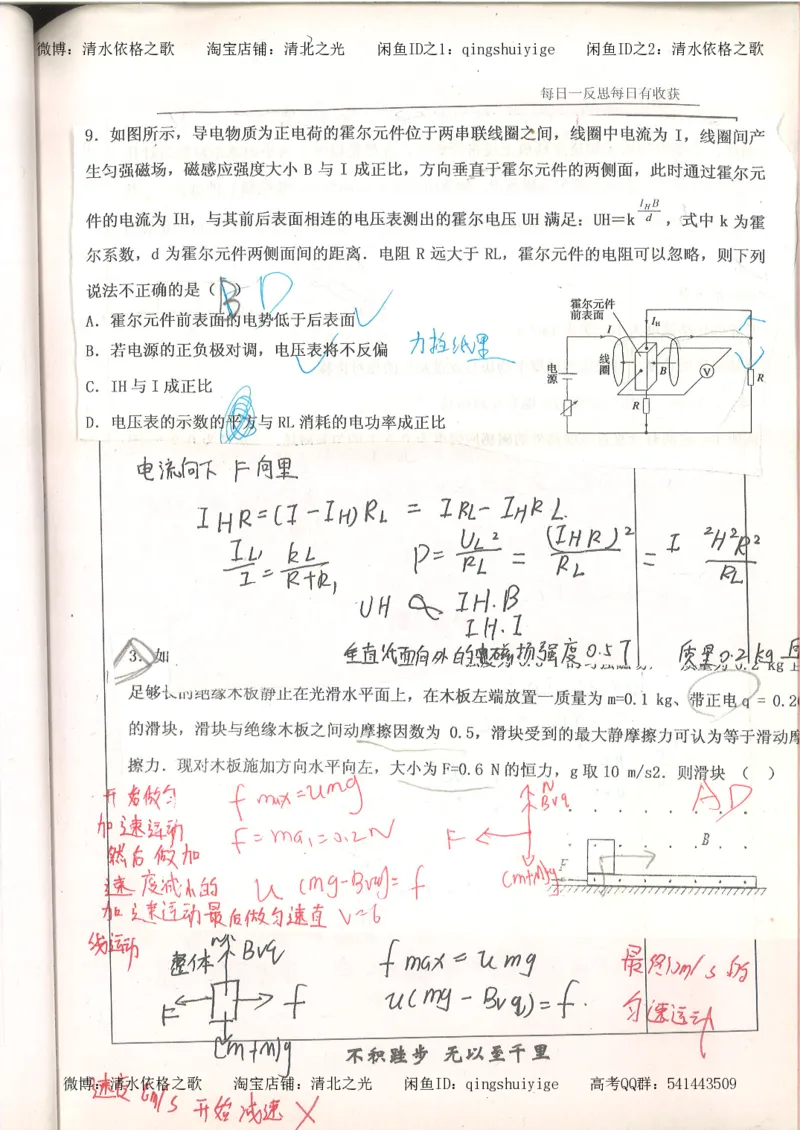 微博：清水依格之歌 淘宝店铺：清北之光 闲鱼ID之1：qingshuiyige 闲鱼ID之2：清水依格之歌
每日一反思每日有收获
9．如图所示，导电物质为正电荷的霍尔元件位于两串联线圈之间，线圈中电流为 I，线圈间产
生匀强磁场，磁感应强度大小 B 与 I 成正比，方向垂直于霍尔元件的两侧面，此时通过霍尔元
件的电流为 IH，与其前后表面相连的电压表测出的霍尔电压 UH 满足：UH＝k I_H B / d，式中 k 为霍
尔系数，d 为霍尔元件两侧面间的距离．电阻 R 远大于 RL，霍尔元件的电阻可以忽略，则下列
说法不正确的是（ B ） D
A．霍尔元件前表面的电势低于后表面
B．若电源的正负极对调，电压表将不反偏
C．IH 与 I 成正比
D．电压表的示数的平方与 RL 消耗的电功率成正比
霍尔元件
前表面
I_H
I
线
圈
B
V
电
源
R
R
电流向下 F向里
I H R = (I - I H) R L = I RL - I H R L.
P = U L² / R L = (I H R)² / R L = I ²H²R² / R L
UH ∝ IH.B
IH.I
3. 如
垂直纸面向外的 磁场强度 0.5T 质量0.2kg
足够长的绝缘木板静止在光滑水平面上，在木板左端放置一质量为 m=0.1 kg、带正电 q = 0.2
的滑块，滑块与绝缘木板之间动摩擦因数为 0.5，滑块受到的最大静摩擦力可认为等于滑动摩
擦力．现对木板施加方向水平向左，大小为 F=0.6 N 的恒力，g 取 10 m/s2．则滑块 （ ）
AD
开始做匀
加速运动
然后做加
速度减小的
加速运动最后做匀速直
线运动
f max = umg
f = ma₁ = 0.2N
u (mg - Bvq) = f
v = 6
N
Bvq
F
(m+M)g
B
F
整体
Bvq
F
f
(m+M)g
f max = u mg
u(mg - Bvq) = f.
最终10m/s的
匀速运动
不积跬步 无以至千里
微博：清水依格之歌 淘宝店铺：清北之光 闲鱼ID：qingshuiyige 高考QQ群：541443509
速度6m/s 开始减速 ×